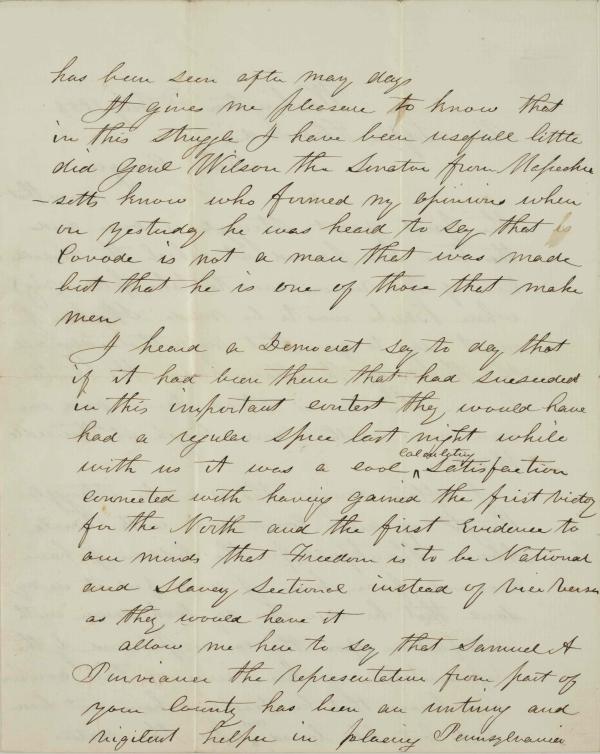 has been seen after many days
It gives me pleasure to know that
in this struggle I have been usefull little
did Genl Wilson the Senator from Massachu
-setts know who formed my opinions when
on yesterday he was heard to say that
Covode is not a man that was made
but that he is one of those that make
men
I heard a Democrat say to day that
if it had been them that had suceeded
in this important contest they would have
had a regular spree last night while
calculating
with us it was a cool ^ satisfaction
connected with having gained the first victory
for the North and the first Evidence to
our minds that Freedom is to be National
and Slavery Sectional instead of vice versa
as they would have it
allow me here to say that Samuel A
Purviance the representative from part of
your County has been an untiring and
vigilent helper in placing Pennsylvania